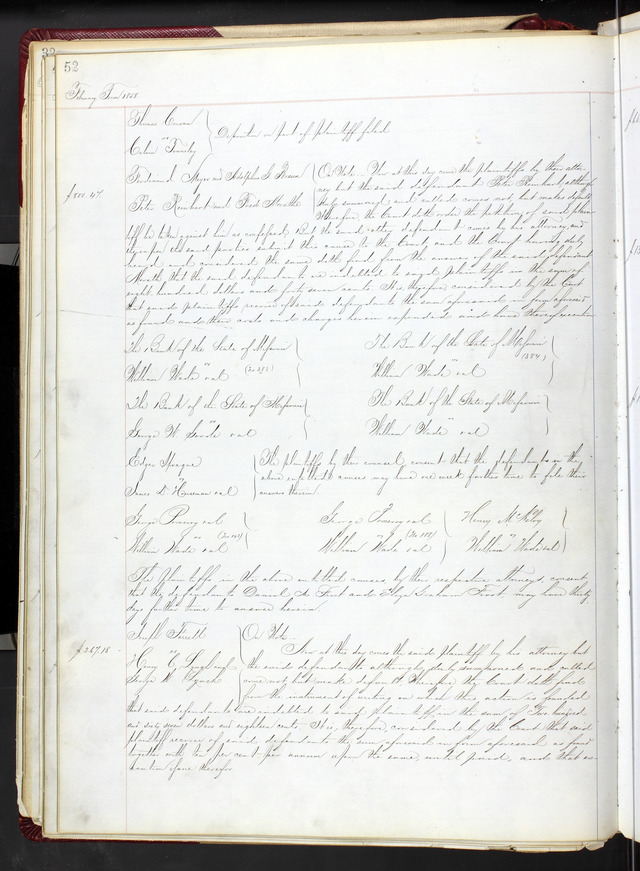 52
February Term 1858
Thomas Curran
vs
Calvin Tinsley
Deposition on part of plaintiff filed
$800.47
Ferdinand Meyer and Adolphus G. Braun
vs
Peter Reinhard and Fred
On Note. Now at this day come the plaintiffs by their attor-
ney but the said defendant Peter Reinhard, although
duly summoned and called comes not but makes default
Wherefore the Court doth order the petition of said plain-
tiff be taken against him as confessed. But the said other defendant comes by his attorney and
the said parties submit this cause to the Court, and the Court having duly
heard and considered the same doth find from the answer of the said defendant
that the said defendants are indebted to said plaintiffs in the sum of
eight hundred dollars and forty seven cents. It is therefore considered by the Court
that said plaintiffs recover of said defendants the sum aforesaid in form aforesaid
as found and their costs and charges herein expended and have thereof execution
The Bank of the State of Missouri
vs
William Wade et al
The Bank of the State of Missouri
vs (384)
William Wade et al
The Bank of the State of Missouri
vs
George W. et al
The Bank of the State of Missouri
vs
William Wade et al
Edgar Sprague
vs
James D. et al
The plaintiffs by their counsel, consent that the defendants in the
above entitled causes may have one week further time to file their
answers therein
George Pomeroy et al
vs
William Wade et al
George Pomeroy et al
vs
William Wade et al
Henry
vs
William Wade et al
The Plaintiffs in the above entitled causes, by their respective attorneys, consent
that the defendants Daniel A. and Frost may have thirty
days further time to answer herein.
$267.18
Joseph
vs
Henry C.
George W.
On Note.
Now at this day comes the said plaintiff by his attorney but
the said defendants although duly summoned and called
come not, but make default. Wherefore the Court doth find
from the instrument of writing on which this action is founded
that said defendants are indebted to said plaintiff in the sum of Two hundred
and sixty seven dollars and eighteen cents. It is, therefore, considered by the Court that said
plaintiff recover of said defendants the sum aforesaid in form aforesaid as found
together with ten per cent per annum upon the same, until paid, and that ex-
ecution issue therefor